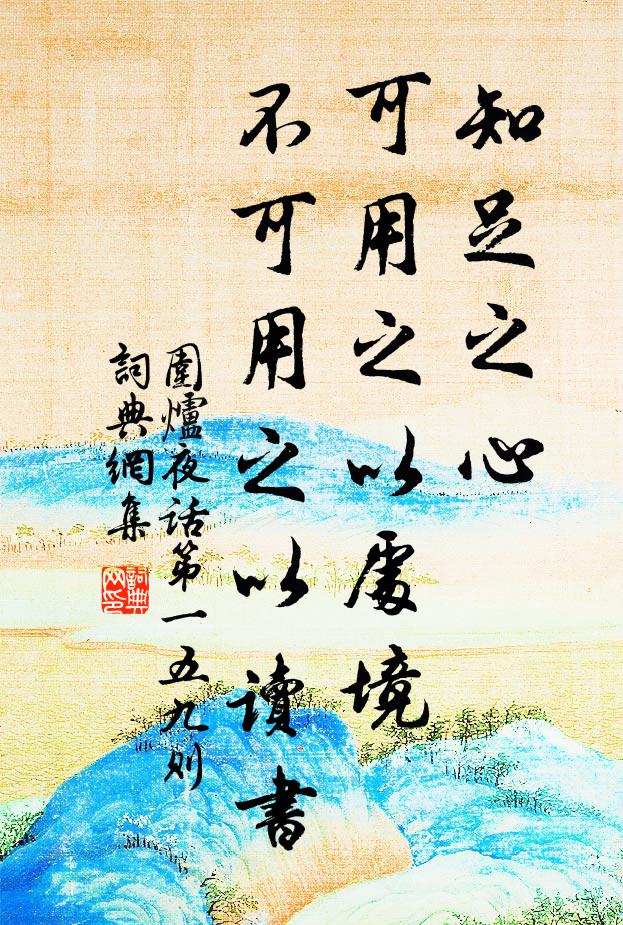 知足之心
可用之以處境
不可用之以讀書
圍爐夜話第一五九则
詞典網集
詞典
网印